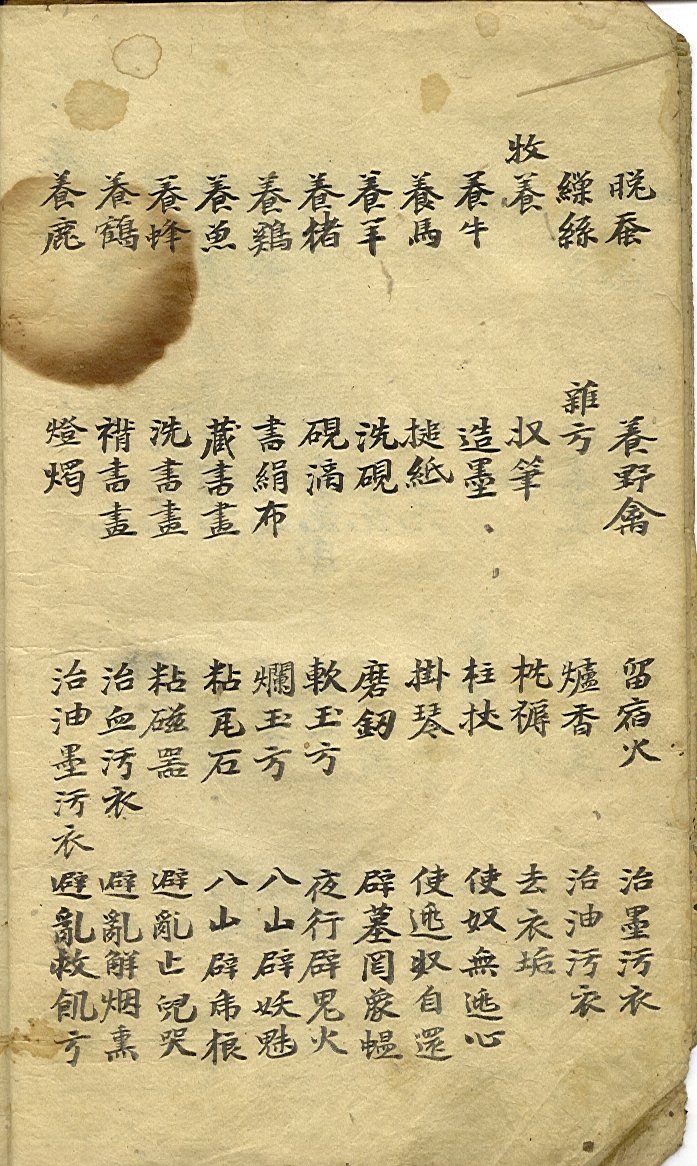 晩蚕
繅絲
牧養
養牛
養馬
養羊
養猪
養鷄
養魚
養蜂
養鶴
養鹿
養野禽
雜方
收筆
造墨
搥紙
洗硯
硯滴
書絹布
藏書畫
洗書畫
褙書畫
燈燭
留宿火
爐香
枕褥
柱杖
掛琴
磨釰
軟玉方
爛玉方
粘瓦石
粘磁器
治血汚衣
治油墨汚衣
治墨汚衣
治油汚衣
去衣垢
使奴無逃心
使逃奴自還
辟墓罔象蝹
夜行辟鬼火
入山辟妖魅
入山辟虎狼
避亂止兒哭
避亂解烟熏
避亂救飢方